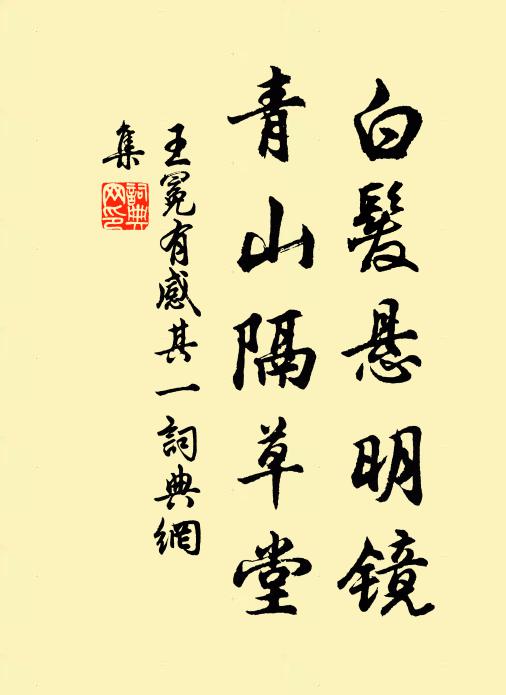 白髮悬明镜
青山隔草堂
王冕有感其一詞典網
集
詞典网印